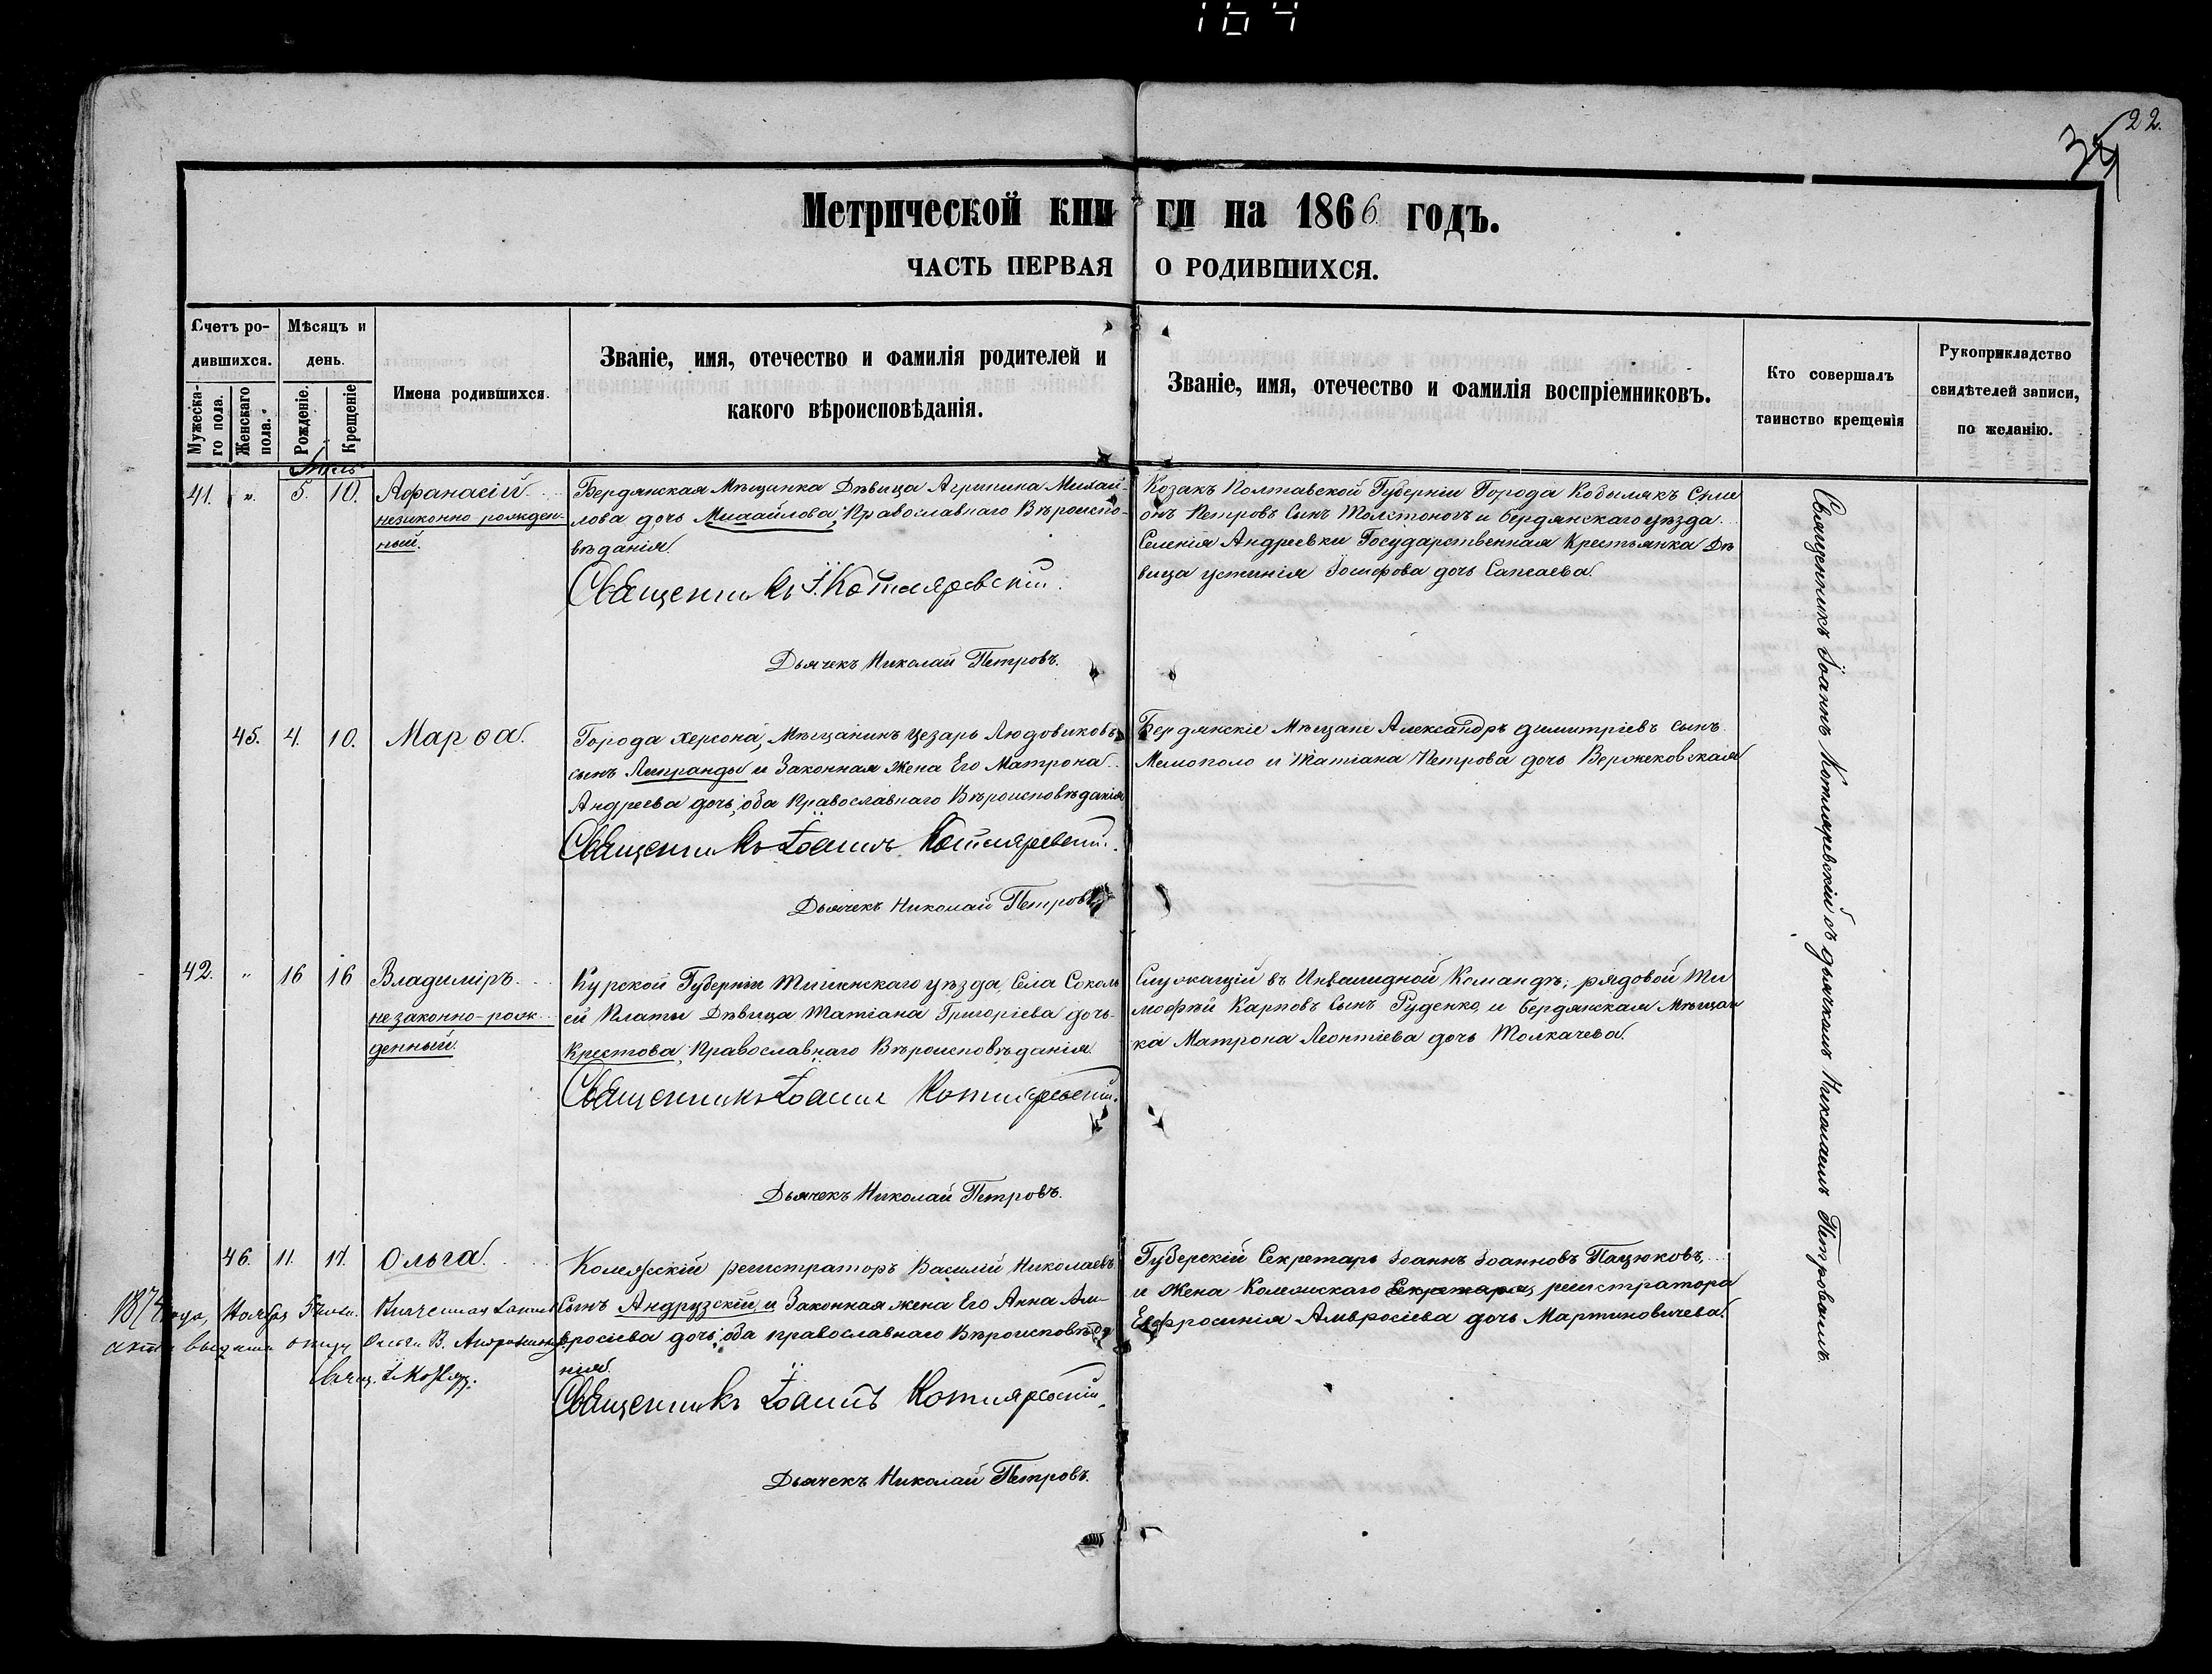 164
22.
34
Метрической книги на 1866 годъ.
ЧАСТЬ ПЕРВАЯ О РОДИВШИХСЯ.
Счетъ ро-
дившихся.
Мужеска-
го пола.
Женскаго
пола.
Мѣсяцъ и
день.
Рожденіе.
Крещеніе
Имена родившихся.
Званіе, имя, отечество и фамилія родителей и
какого вѣроисповѣданія.
Званіе, имя, отечество и фамилія воспріемниковъ.
Кто совершалъ
таинство крещенія
Рукоприкладство
свидѣтелей записи,
по желанію.
41. „ 5. 10. Аѳанасій
незаконно рожден-
ный.
Бердянская Мѣщанка Дѣвица Агрипина Михай-
лова дочь Михайлова, Православнаго Вѣроиспо-
вѣданія.
Священникъ І. Котляревскій.
Дьячекъ Николай Петровъ.
Козакъ Полтавской Губерніи Города Кобылякъ Симе
онъ Петровъ Сынъ Толстоногъ и Бердянскаго уѣзда
Селенія Андреевки Государственная Крестьянка Дѣ
вица Устинія Іосифова дочь
45. 4. 10. Марѳа.
Города Херсона, Мѣщанинъ Цезарь Людовиковъ
сынъ Липранды и Законная Жена Его Матрона
Андреева дочь, оба Православнаго Вѣроисповѣданія
Священникъ Іоаннъ Котляревскій.
Дьячекъ Николай Петровъ
Бердянскіе Мѣщане Александръ Димитріевъ сынъ
и Татіана Петрова дочь Вержековская
42. „ 16 16 Владиміръ
незаконно-рож-
денный.
Курской Губерніи уѣзда, Села Соколь
ей Платы Дѣвица Татіана Григоріева дочь
Крестова, Православнаго Вѣроисповѣданія.
Священникъ Іоаннъ Котляревскій.
Дьячекъ Николай Петровъ.
Служащій въ Инвалидной Командѣ, рядовой Ти
мофѣй Карповъ Сынъ Руденко, и Бердянская Мѣщан
ка Матрона Леонтіева дочь Толкачева.
46. 11. 17. Ольга.
Колежскій регистраторъ Василій Николаевъ
Сынъ Андрузскій, и Законная жена Его Анна Ам-
вросіева дочь, оба православнаго Вѣроисповѣда
нія.
Священникъ Іоаннъ Котляревскій.
Дьячекъ Николай Петровъ.
Губерскій Секретарь Іоаннъ Іоанновъ Пацюковъ,
и Жена Колежскаго Секретаря, регистратора
Евфросинія Амвросіева дочь Мартиновичева.
1874 года, Ноября 5
выдана отцу Ольги В.
Свящ. І. Котляр.
Священникъ Іоаннъ Котляревскій съ дьячкомъ Николаемъ Петровымъ.